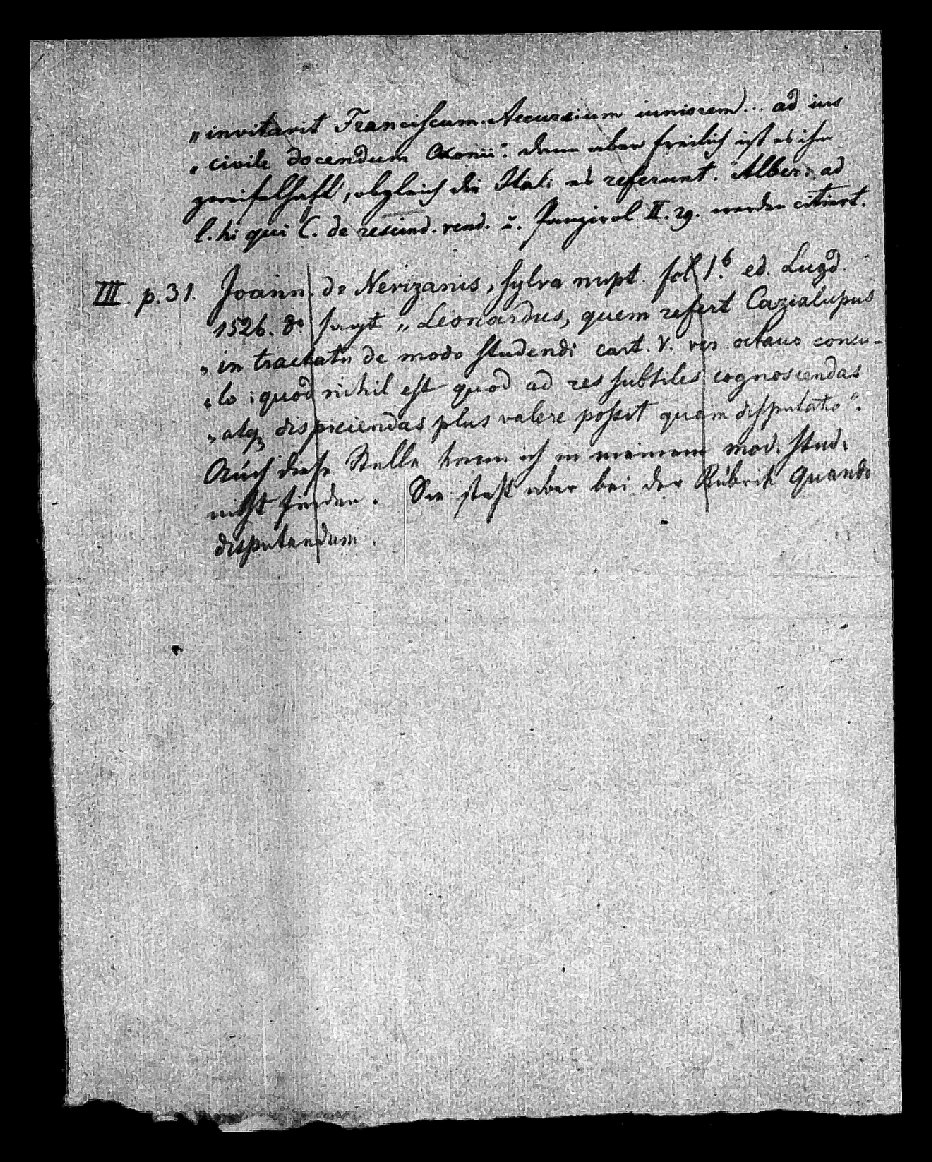 „invitavit Franciscum Accursium iuniorem)... ad ius
„civile docendum Oxonii“. dann aber freilich ist es ihm
zweifelhaft, obgleich die Itali es referunt. Alber. ad
l. hi qui C. de rescind. vend. u. Panzirol II. 29. werden citirt.
III p. 31. Joann. de Nevizanis, sylva nupt. fol 1.b ed. Lugd.
1526. 8o sagt „Leonardus, quem refert Cazialupus
„in tractatu de modo studendi cart. V. ver. octavo
„lo: quod nihil est quod ad res subtiles cognoscendas
„atq dispiciendas plus valere possit quam disputatio“.
Auch diese Stelle kann ich in meinem mod. stud.
nicht finden. Sie steht aber bei der Rubrik Quando
disputandum.